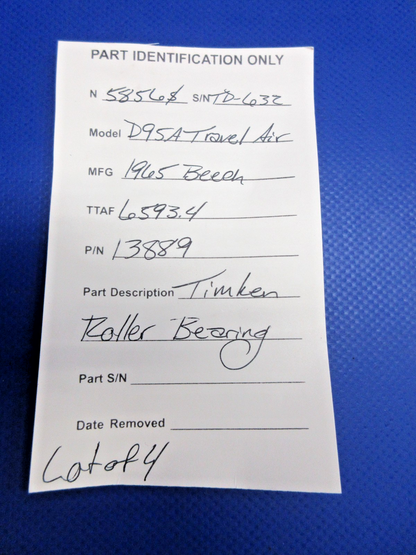 PART IDENTIFICATION ONLY
N 5856S S/N TD-632
Model D95A Travel Air
MFG 1965 Beech
TTAF 6593.4
P/N 13889
Part Description Timken
Roller Bearing
Part S/N
Date Removed
Lot of 4